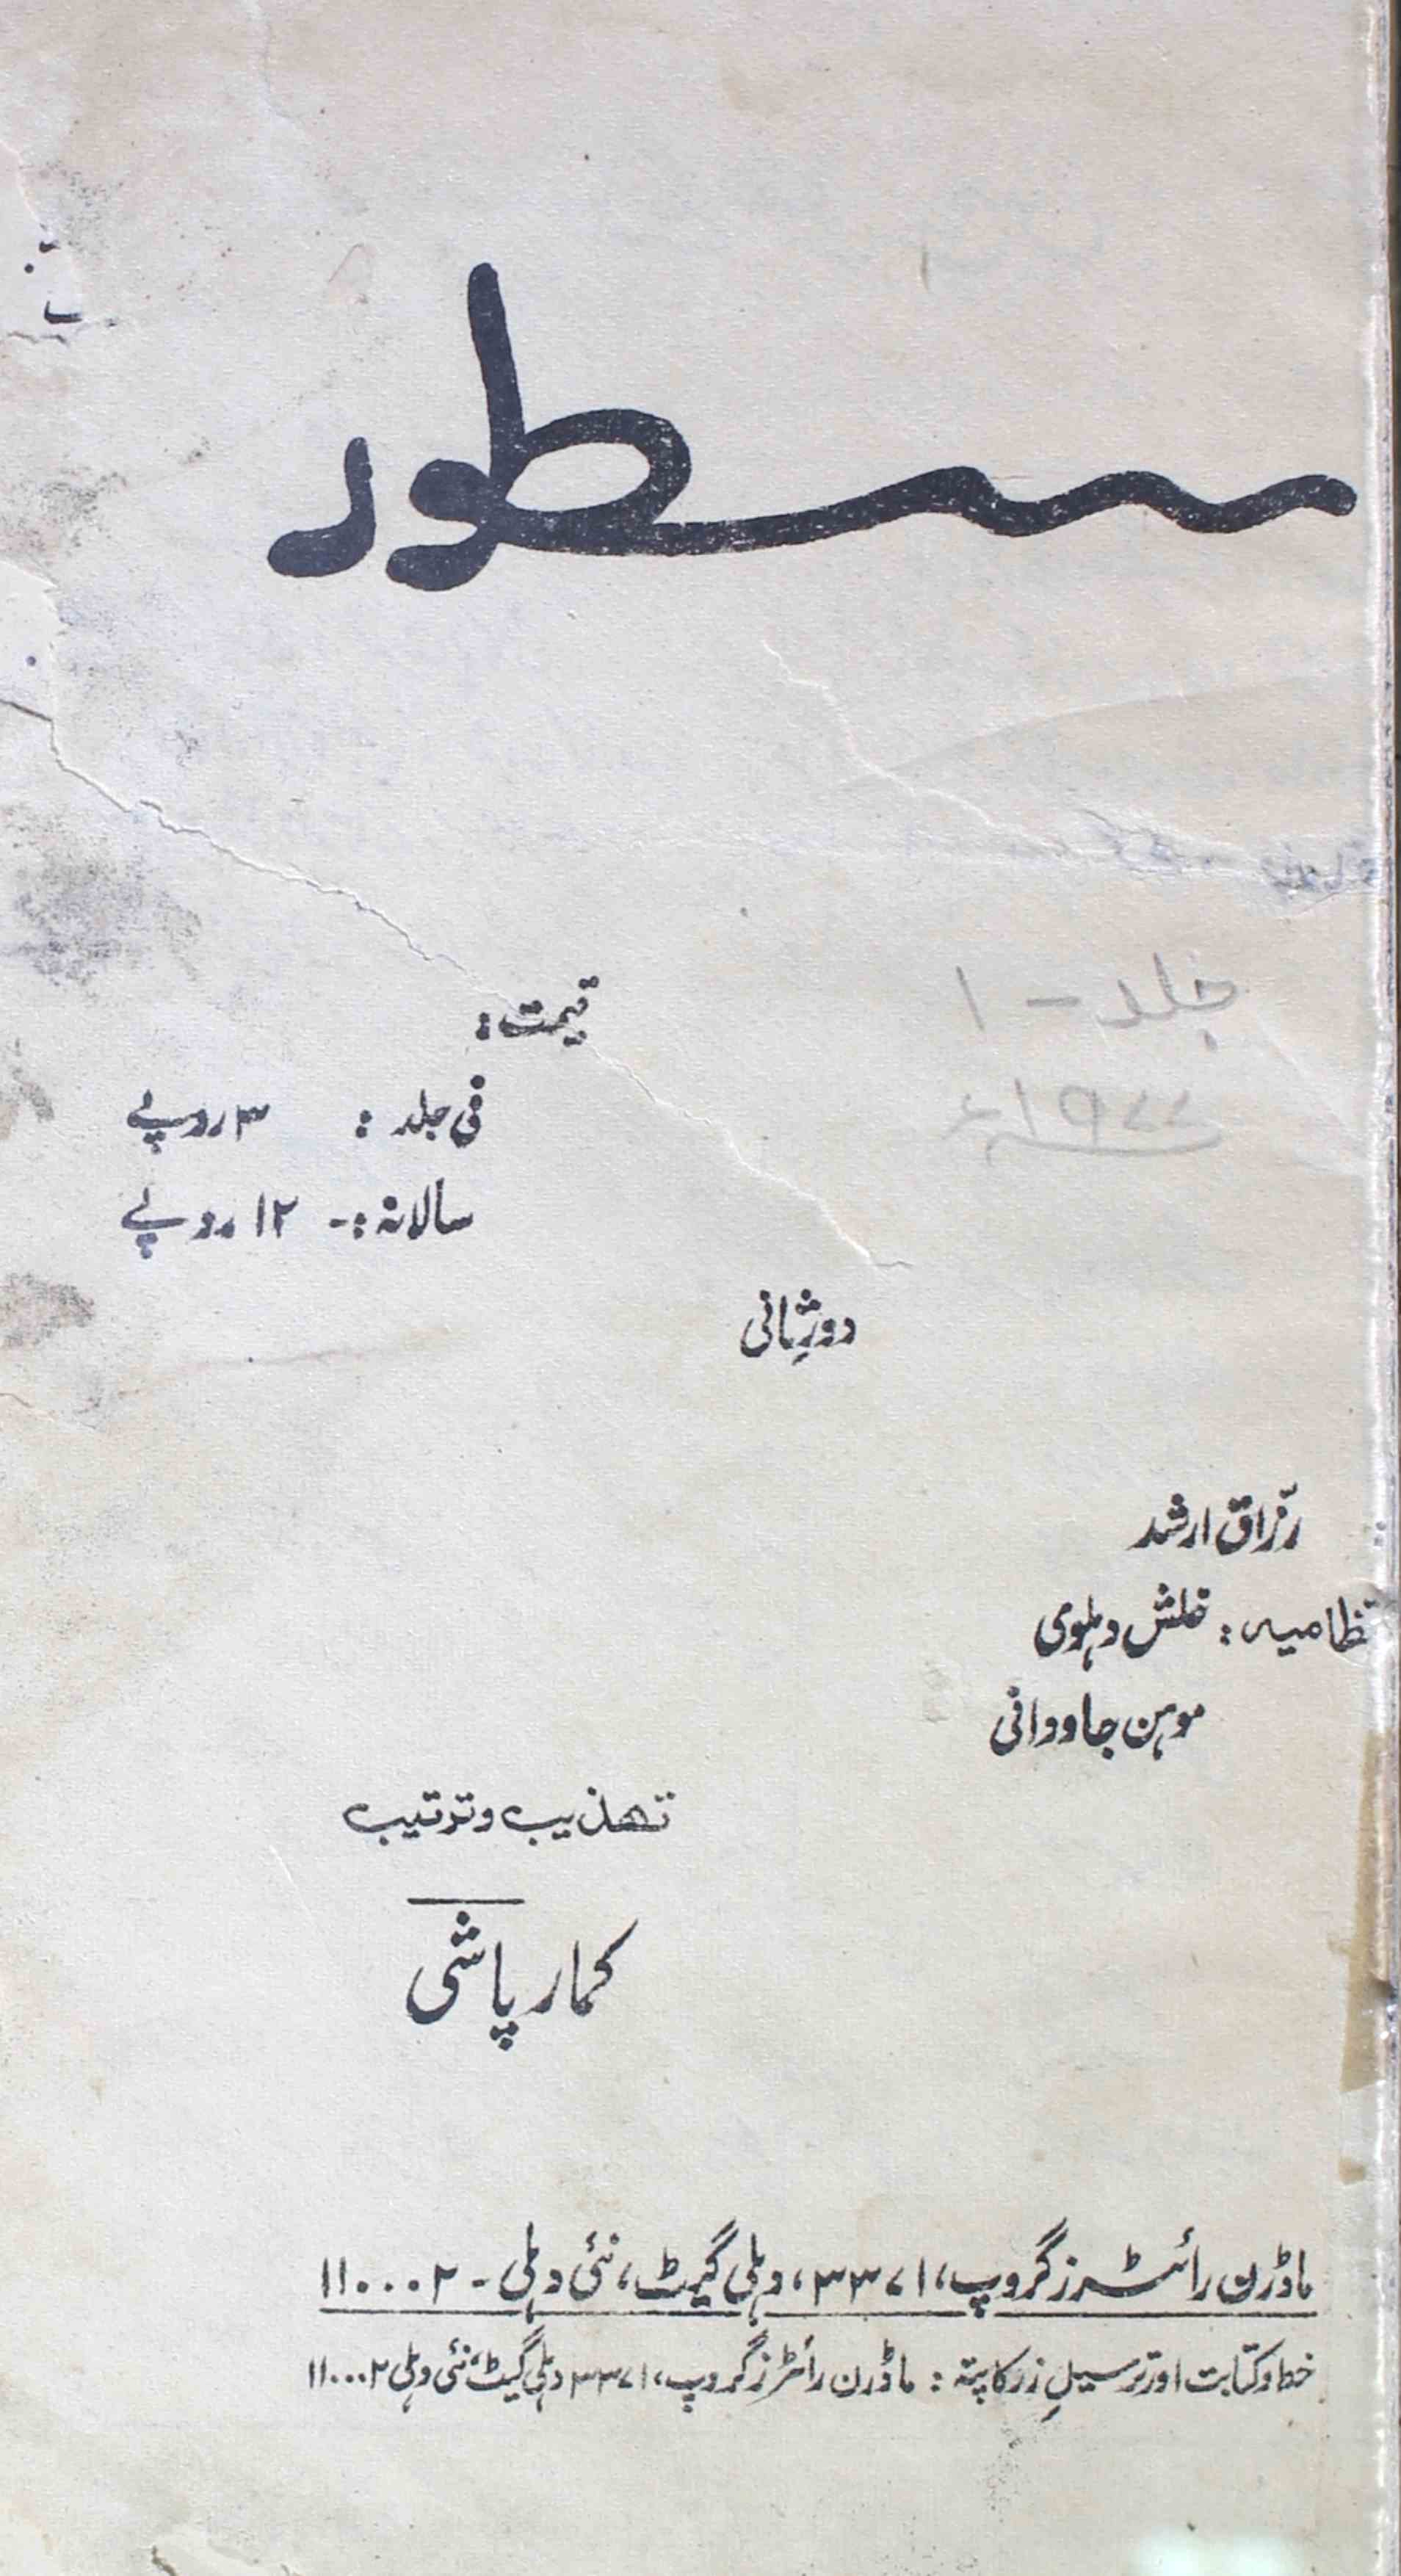 سطور
جلد - ۱
۱۹۷۷ء
قیمت :
فی جلد : ۳ روپے
سالانہ :- ۱۲ روپے
دورِثانی
رزّاق ارشد
نتظامیہ : خلش دہلوی
موہن جاوودانی
تھذیب و ترتیب
کمار پاشی
ماڈرن رائٹرز گروپ، ۳۳۷۱، دہلی گیٹ، نئی دہلی - ۱۱۰۰۰۲
خط و کتابت اور ترسیلِ زر کا پتہ : ماڈرن رائٹرز گروپ، ۳۳۷۱ دہلی گیٹ، نئی دہلی ۱۱۰۰۰۲